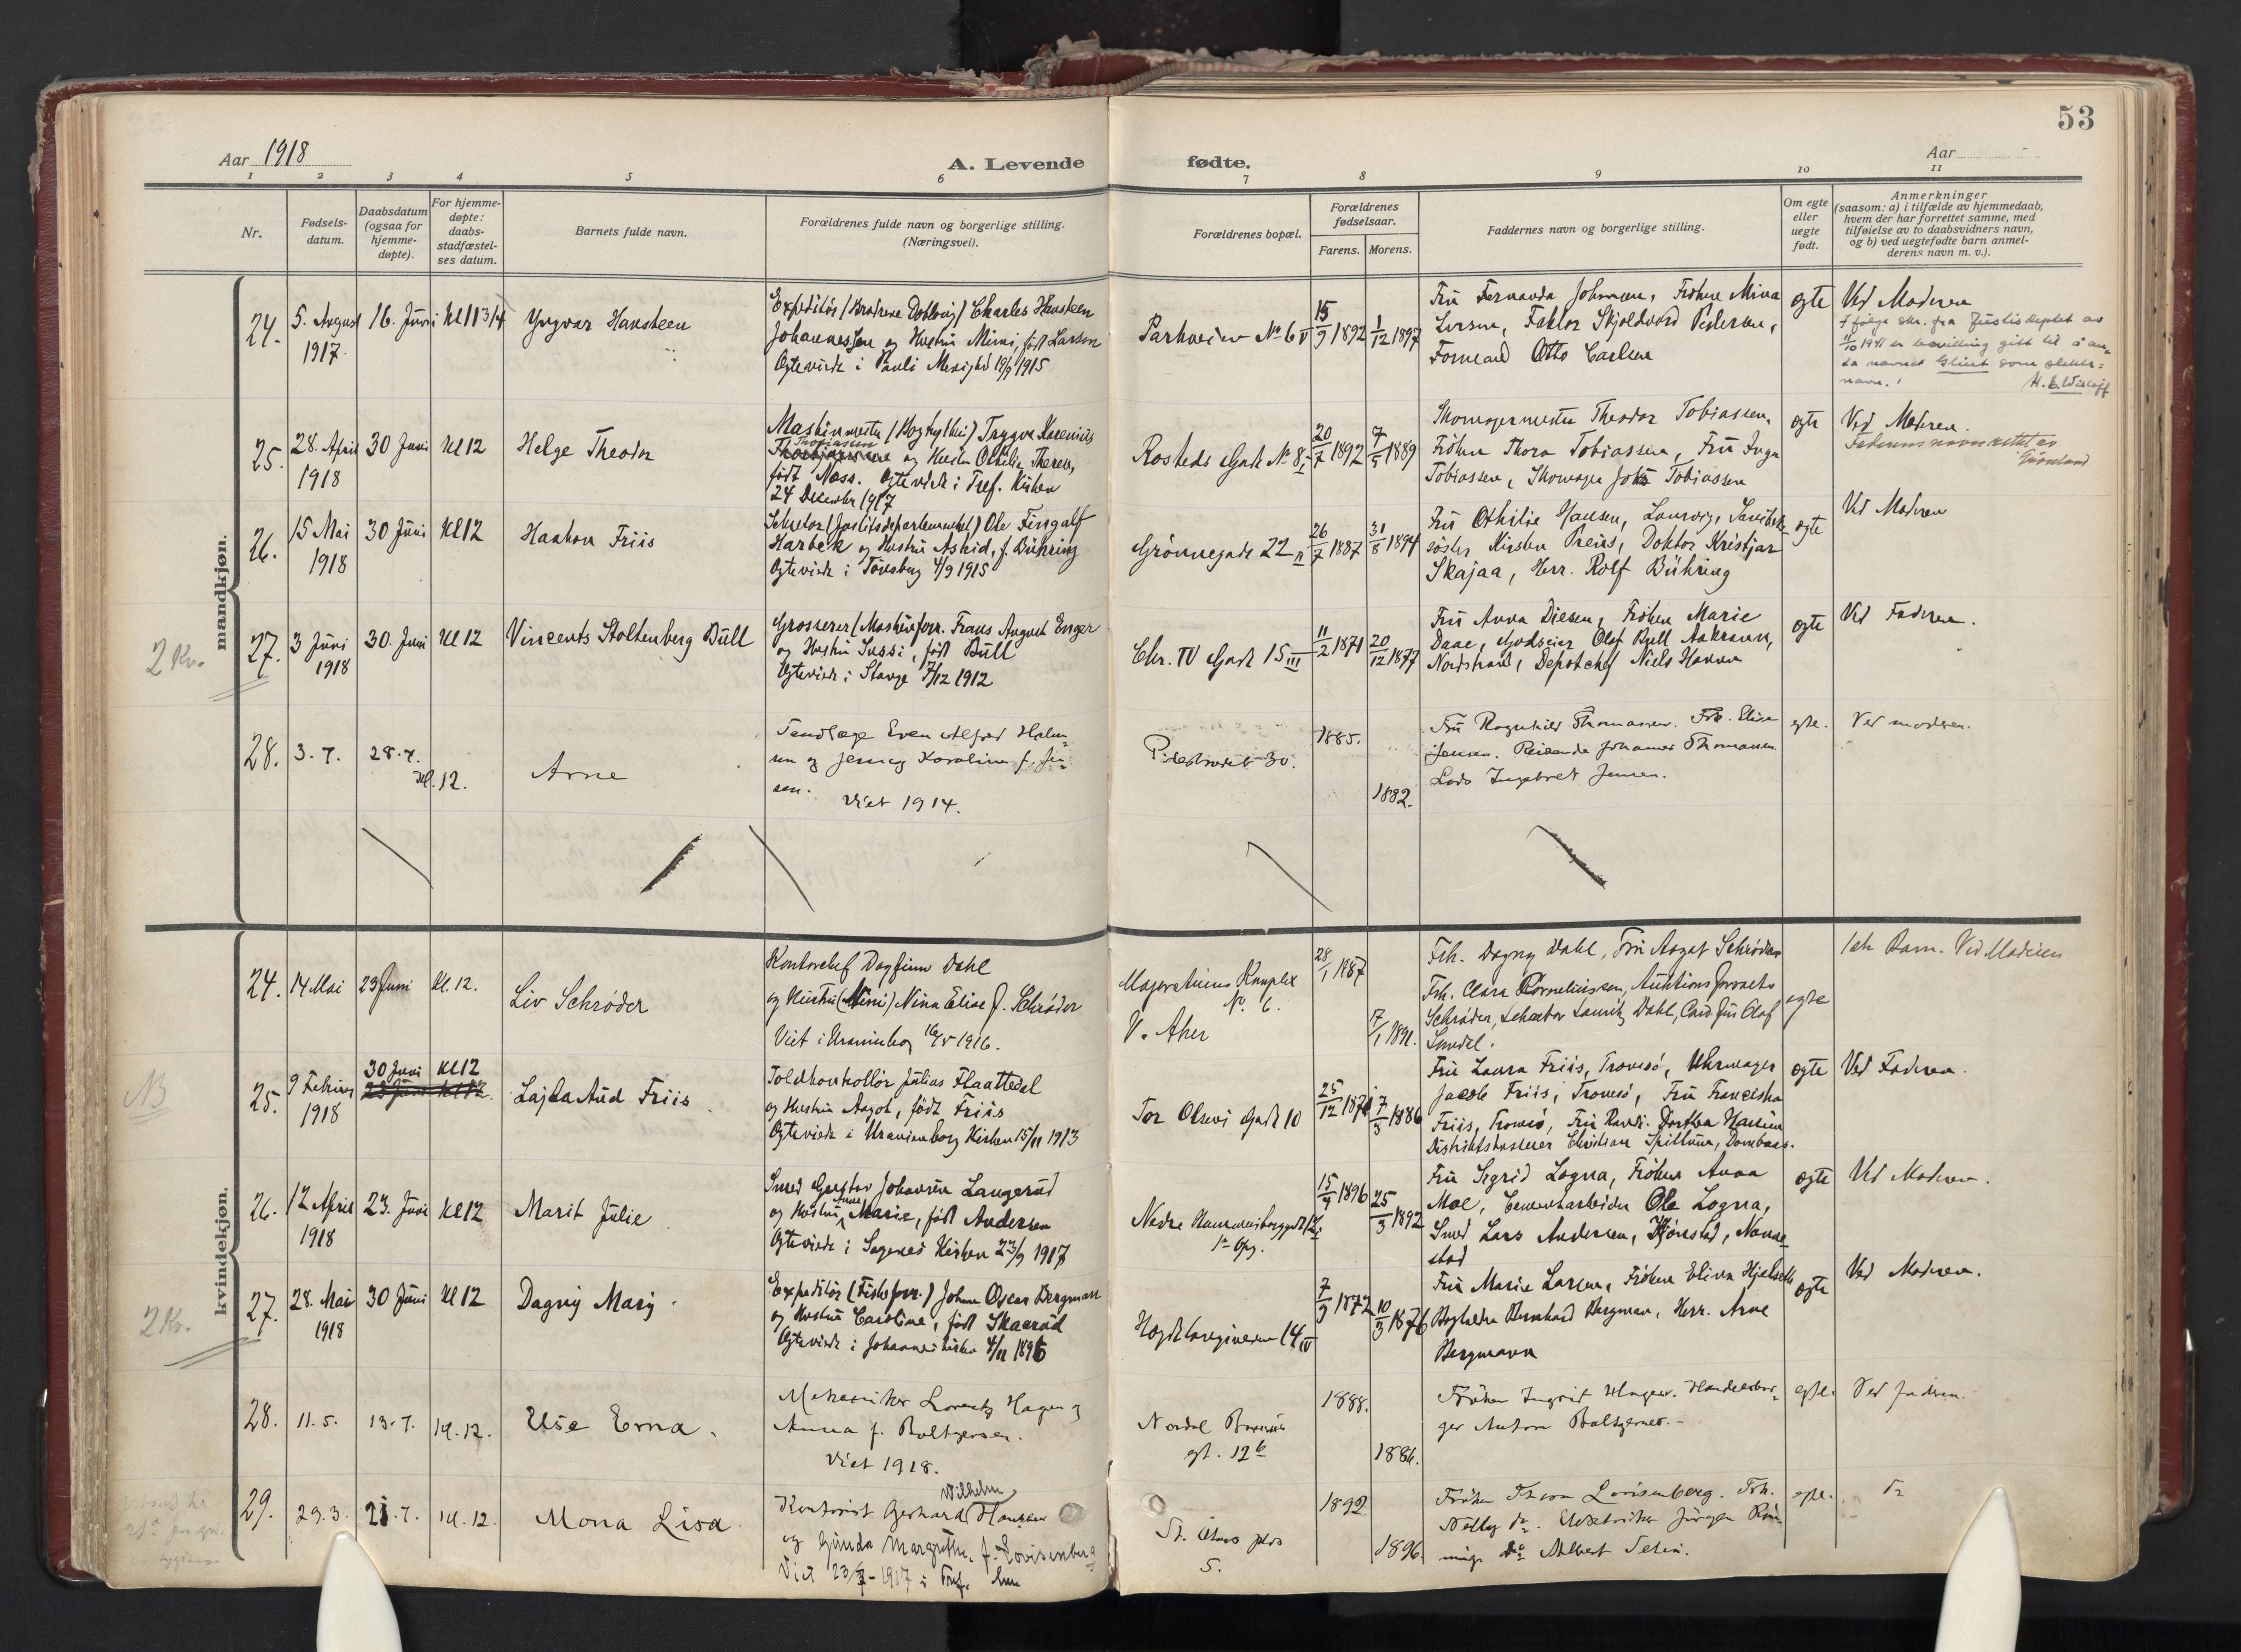 53
Aar 1918
A. Levende fødte.
Aar
1 2 3 4 5 6 7 8 9 10 11
Nr.
Fødsels-
datum.
Daabsdatum
(ogsaa for
hjemme-
døpte).
For hjemme-
døpte:
daabs-
stadfæstel-
ses datum.
Barnets fulde navn.
Forældrenes fulde navn og borgerlige stilling.
(Næringsvei).
Forældrenes bopæl.
Forældrenes
fødselsaar.
Farens. Morens.
Faddernes navn og borgerlige stilling.
Om egte
eller
uegte
født.
Anmerkninger
(saasom: a) i tilfælde av hjemmedaab,
hvem der har forrettet samme, med
tilføielse av to daabsvidners navn,
og b) ved uegtefødte barn anmel-
derens navn m. v.).
mandkjøn.
24.
5. August
1917.
16. Juni
Kl 11 3/4
Yngvar Hansteen
Expeditør (Brødrene Dobloug) Charles Hansteen
Johannessen og Hustru Mimi, født Larsen
Ogteviede i Pauli Menighed 19/9 1915
Parkveien No 6 V
15/9 1892
1/12 1897
Fru Fernanda Johnsen, Frøken Mina
Iversen, Faktor Skjoldvord Pedersen,
Formand Otto Carlsen
ogte
Ved Moderen
Ifølge skr. fra Justisdeptet av
11/10 1941 er bevilling gitt til å an-
ta navnet Glint som slekts-
navn.
25.
28. April
1918
30 Juni
Kl 12
Helge Theodor
Maskinmester (Kogtyltni) Trygve Karenius
Thobiassen
og Hustru Othilie Therese,
født Næss. Ogteviede i Tref. Kirken
24 December 1917
Rosteds Gade No 8 I
20/7 1892
7/5 1889
Skomagermester Theodor Tobiassen,
Frøken Thora Tobiassen, Fru Inga
Tobiassen, Skomager John Tobiassen
ogte
Ved Moderen.
Faderens navn rettet av
26.
15 Mai
1918
30 Juni
Kl 12
Haakon Friis
Sekretær (Justitsdepartementet) Ole Fingalf
Harbek og Hustru Astrid, f. Bühring
Ogteviede i Tønsberg 4/9 1915
Grønnegade 22 II
26/7 1887
31/8 1894
Fru Othilie Hansen, Laurvig, Sanitets-
søster Kirsten Preus, Doktor Kristjar
Skajaa, Herr. Rolf Bühring
ogte
Ved Moderen
2 Kv.
27.
3 Juni
1918
30. Juni
Kl 12
Vincents Stoltenberg Bull
Grosserer (Maskinforr. Frans August Enger
og Hustru Sussi, født Bull
Ogteviede i Stange 7/12 1912
Chr. IV Gade 15 III
11/2 1871
20/12 1877
Fru Anna Diesen, Frøken Marie
Daae, Godseier Olaf Bull Aakrann,
Nordstrand, Depotchef Niels Hannen
ogte
Ved Faderen.
28.
3. 7.
28. 7.
Kl. 12.
Arne
Tandlæge Even Alfred Holm-
sen og Jenny Karoline f. Jen-
sen.
Viet 1914.
Pilestrædet 30.
1885.
1882.
Fru Ragnhild Thomassen. Frk. Elise
Jensen. Reisende Johannes Thomassen
Lods Ingebret Jensen.
egte.
Ved moderen.
kvindekjøn.
24.
14 Mai
23 Juni
Kl. 12.
Liv Schrøder
Kontorchef Dagfinn Dahl
og Hustru (Mimi) Nina Elise f. Schrøder
Viet i Uranienborg 16/5 1916.
Majorstuens Komplex
No. 6.
V. Aker
28/1 1887
17/1 1891.
Frk. Dagny Dahl, Fru Aagot Schrøder
Frk. Clara Corneliussen, Auktionsforvalter
Schrøder, Sekretær Lauritz Dahl, Cand. Jur. Olaf
Smedal.
egte
1ste Barn. Ved Moderen
NB
25.
9 Februar
1918
30 Juni
Kl 12
23 Juni Kl 12.
Lajla Aud Friis
Toldkontrollør Julius Flaattedal
og Hustru Aagot, født Friis
Ogteviede i Uranienborg Kirken 15/11 1913
Tor Olsens Gade 10
25/12 1874
7/3 1886
Fru Laura Friis, Tromsø, Uhrmager
Jacob Friis, Tromsø, Fru Franciska
Friis, Tromsø, Fru Randi Dorthea Hansen
Distriktskasserer Christian Spillum, Dombaas.
ogte
Ved Faderen.
26.
12 April
1918
23. Juni
Kl 12
Marit Julie
Smed Gustav Johansen Langerud
Anne
og Hustru Marie, født Andersen
Ogteviede i Sagenes Kirken 23/9 1917
Nedre
1ste Opg.
15/4 1896
25/3 1892
Fru Sigrid Logna, Frøken Anna
Moe, Cementarbeider Ole Logna,
Smed Lars Andersen, Hjønstad, Nanne-
stad
ogte
Ved Moderen.
2 Kv.
27.
28. Mai
1918
30 Juni
Kl 12
Dagny Mary
Expeditør (Fiskeforr.) Johan Oscar Bergmann
og Hustru Caroline, født Skaerud
Ogteviede i Johannes Kirken 4/11 1896
Hægdehaugsveien 14 IV
7/9 1872
10/3 1876
Fru Marie Larsen, Frøken Elina Hjelseth
Bogholder Bernhard Bergman, Herr. Arne
Bergmann
ogte
Ved Moderen.
28.
11. 5.
13. 7.
Kl. 12.
Else Erna.
Mekaniker Lorentz Hagen og
Anna f. Boltzersen.
Viet 1918.
Nordal Bruns
gt. 12 b
1888.
1886.
Frøken Ingrid Hagen. Handelsbor-
ger Anton Baltzersen.
egte.
Ved faderen.
29.
29. 3.
21. 7.
Kl. 12.
Mona Lisa.
Wilhelm
Kontorist Gerhard Hansen
og Gunda Margrethe f. Lovisenberg
Viet 23/7 - 1917 i Tref. kirke
St. Olavs plds
5.
1892
1896.
Frøken Thora Lovisenberg. Frk.
Nelly do. Elektriker Jørgen Røn-
ning. Albert Selin.
egte.
do